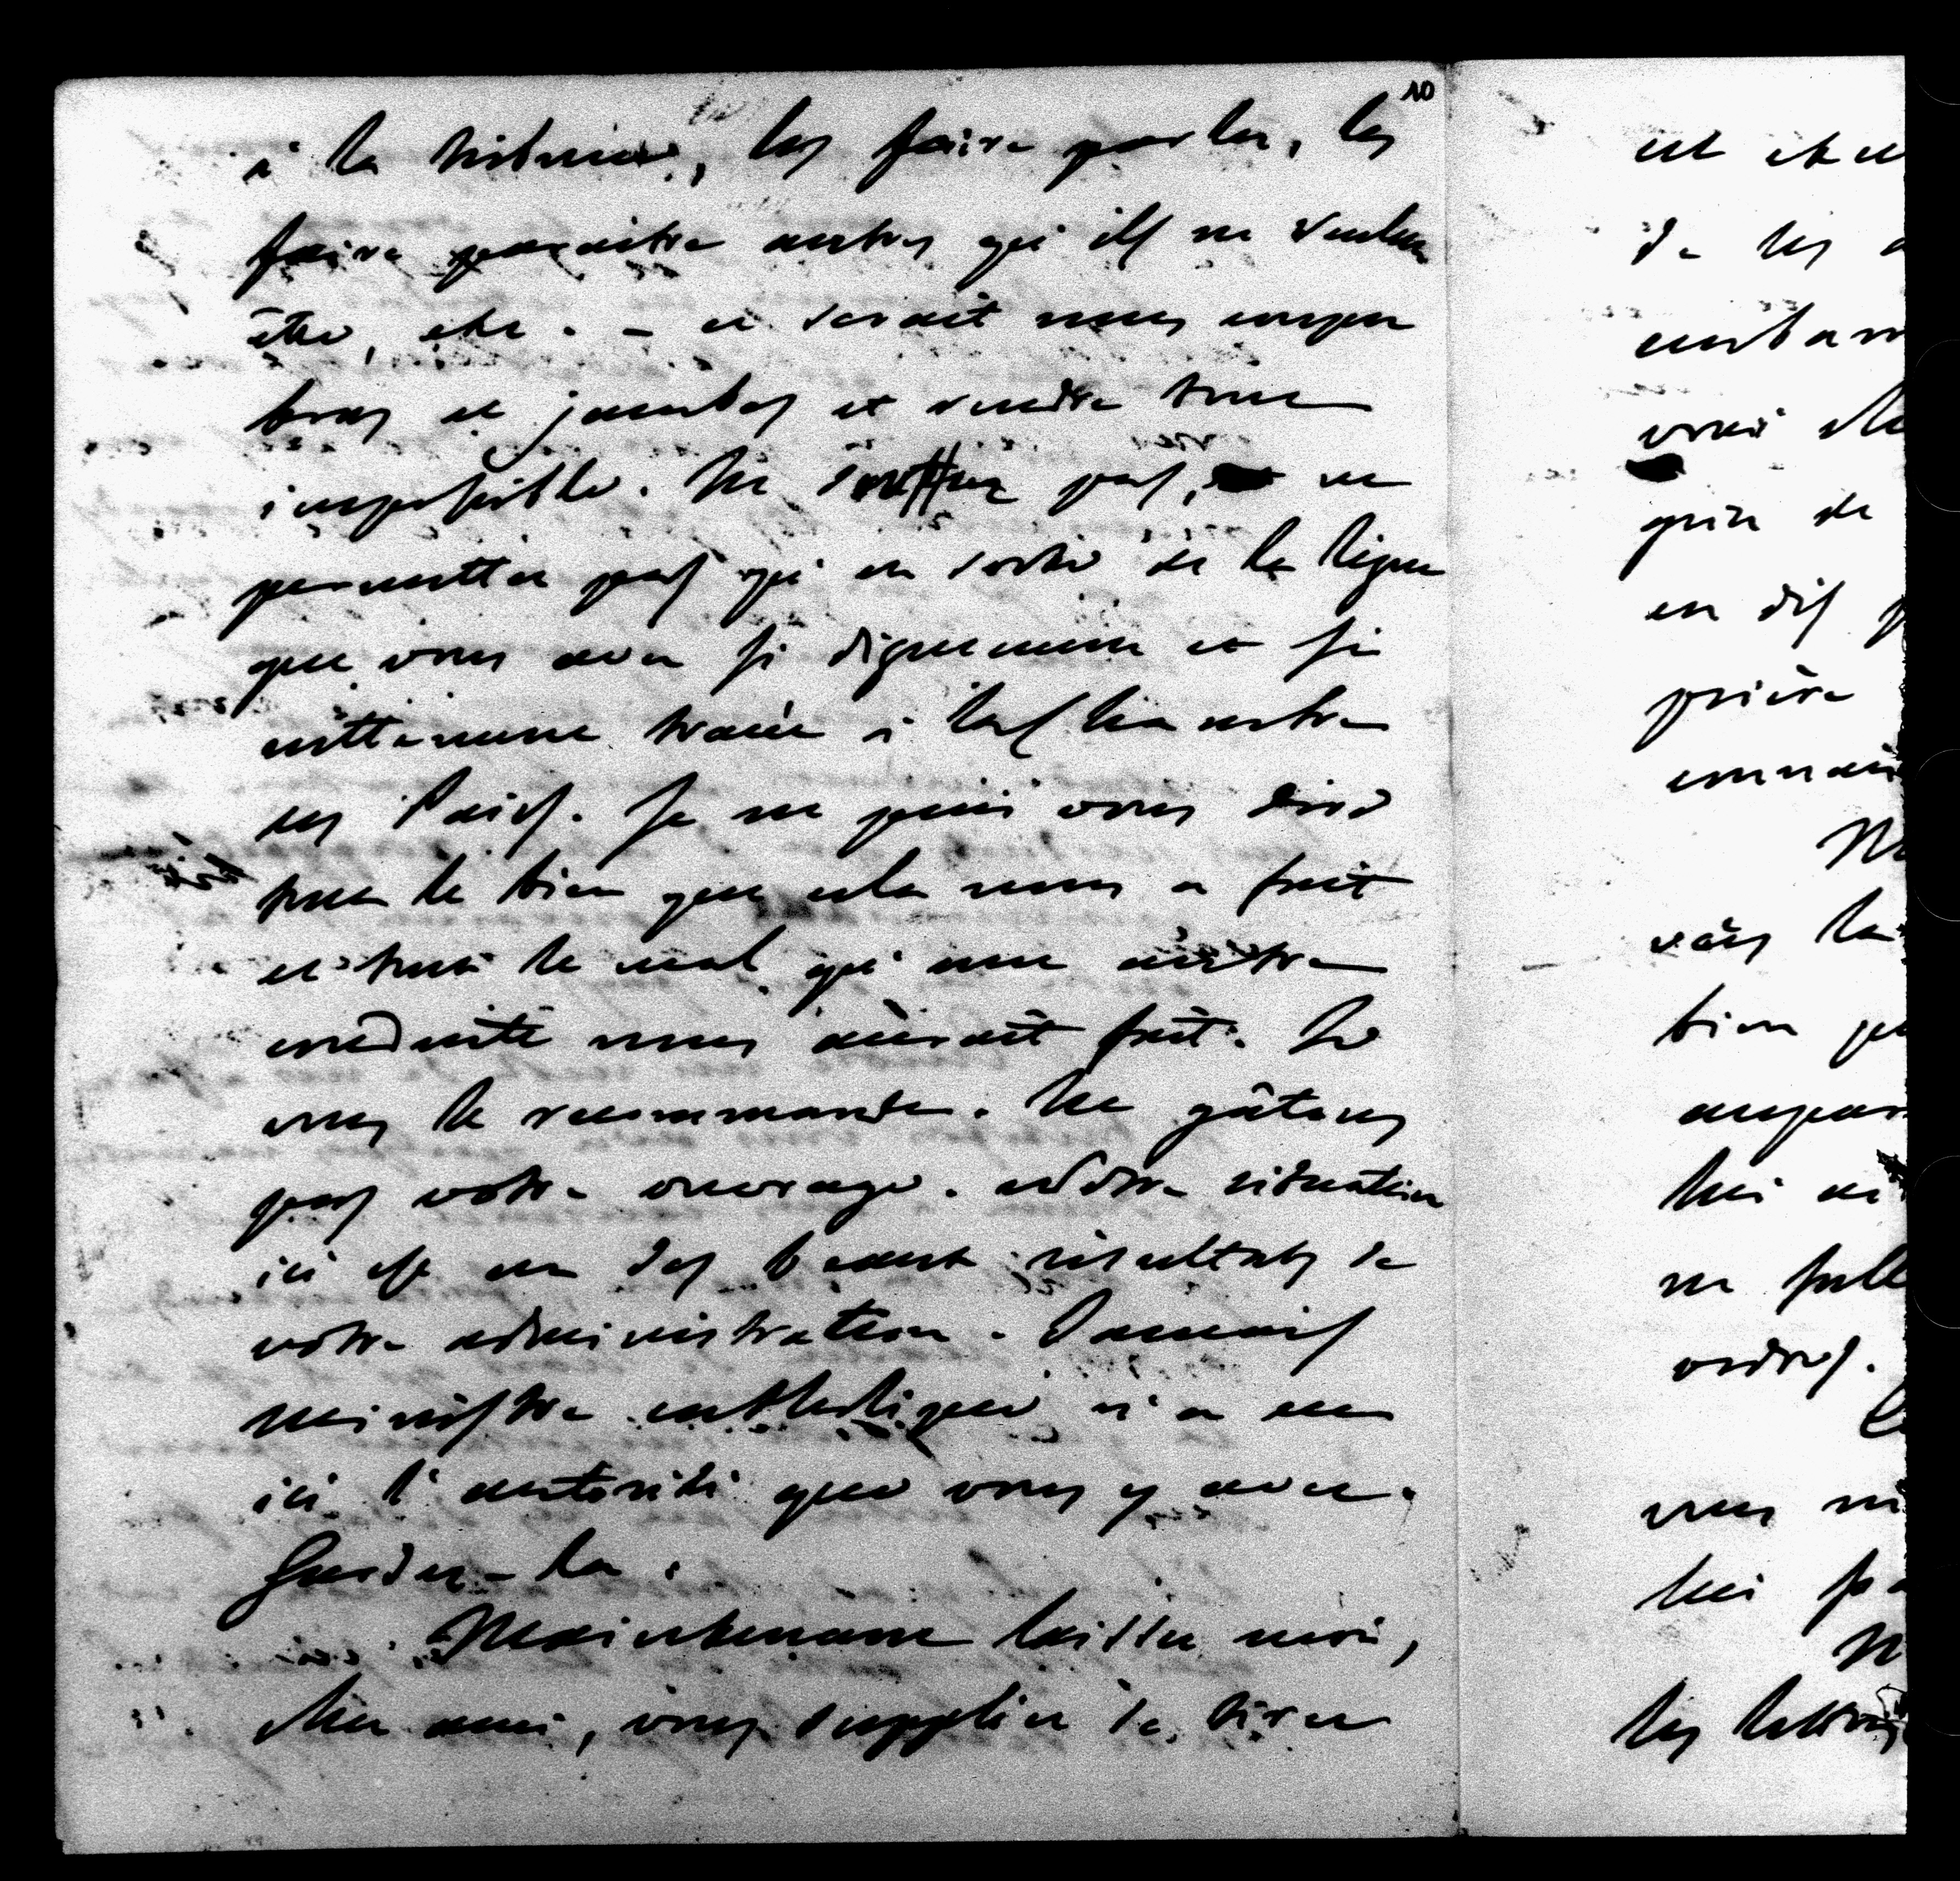 10
à la tribune, les faire parler, les
faire paraitre autres qu'ils ne veulent
être, etc. - ce serait nous couper
bras et jambes et rendre tout
impossible. Ne sortez pas, ne
permettez pas qu'on sorte de la ligne
que vous avez si dignement et si
nettement tracée à la Chambre
des Pairs. Je ne puis vous dire
tout le bien que cela nous a fait
et tout le mal qu'une autre
conduite nous aurait fait. Je
vous le recommande. Ne gâtons
pas votre ouvrage. Notre situation
ici est un des beaux résultats de
votre administration. Jamais
ministre catholique n'a eu
ici l'autorité que vous y avez.
Gardez-la.
Maintenant laissez moi,
cher ami, vous supplier de tirer
de les
vrai
en dis
prière
vais la
bien
lui
ne
ordres.
lui
les